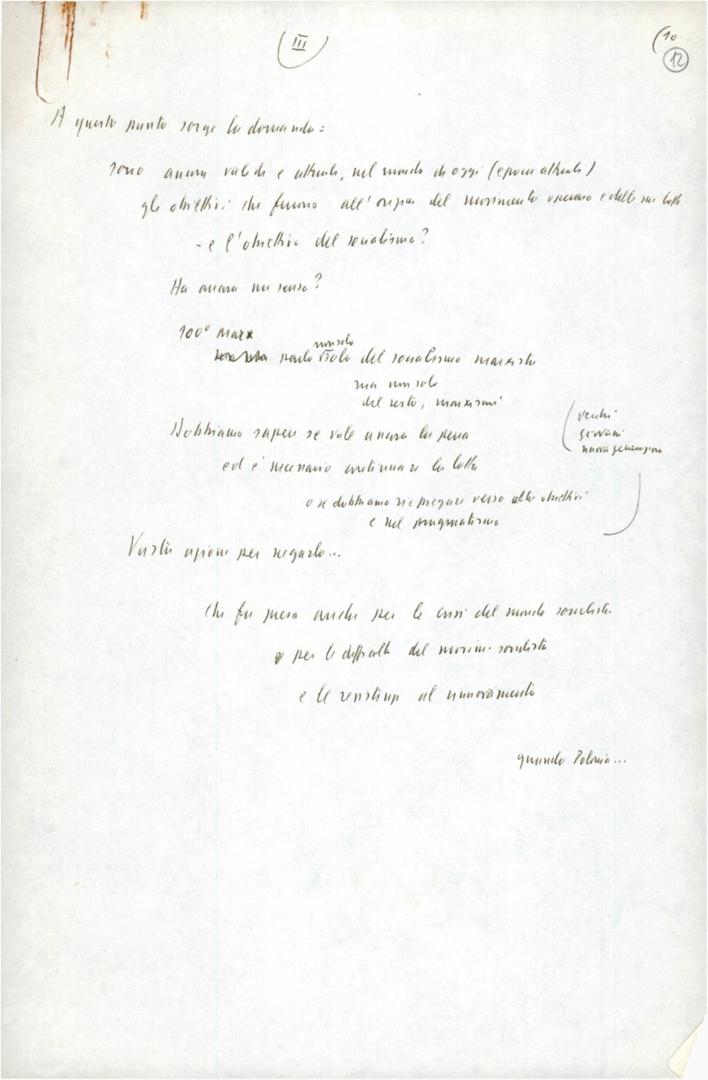 III
10
12
A questo punto sorge la domanda:
sono ancora validi e attuali, nel mondo di oggi (epoca attuale)
gli obiettivi che furono all'origine del movimento operaio e delle sue lotte
- e l'obiettivo del socialismo?
Ha ancora un senso?
100° Marx
non solo
parlo del socialismo marxista
ma non solo
del resto, marxismi
Dobbiamo sapere se vale ancora la pena
ed è necessario continuare la lotta
o se dobbiamo ripiegare verso altri obiettivi
e nel pragmatismo
vecchi
giovani
nuova generazione
Vasta azione per negarlo...
che fa presa anche per le crisi del mondo socialista
e per le difficoltà del movim. socialista
e le resistenze al rinnovamento
quando Polonia...